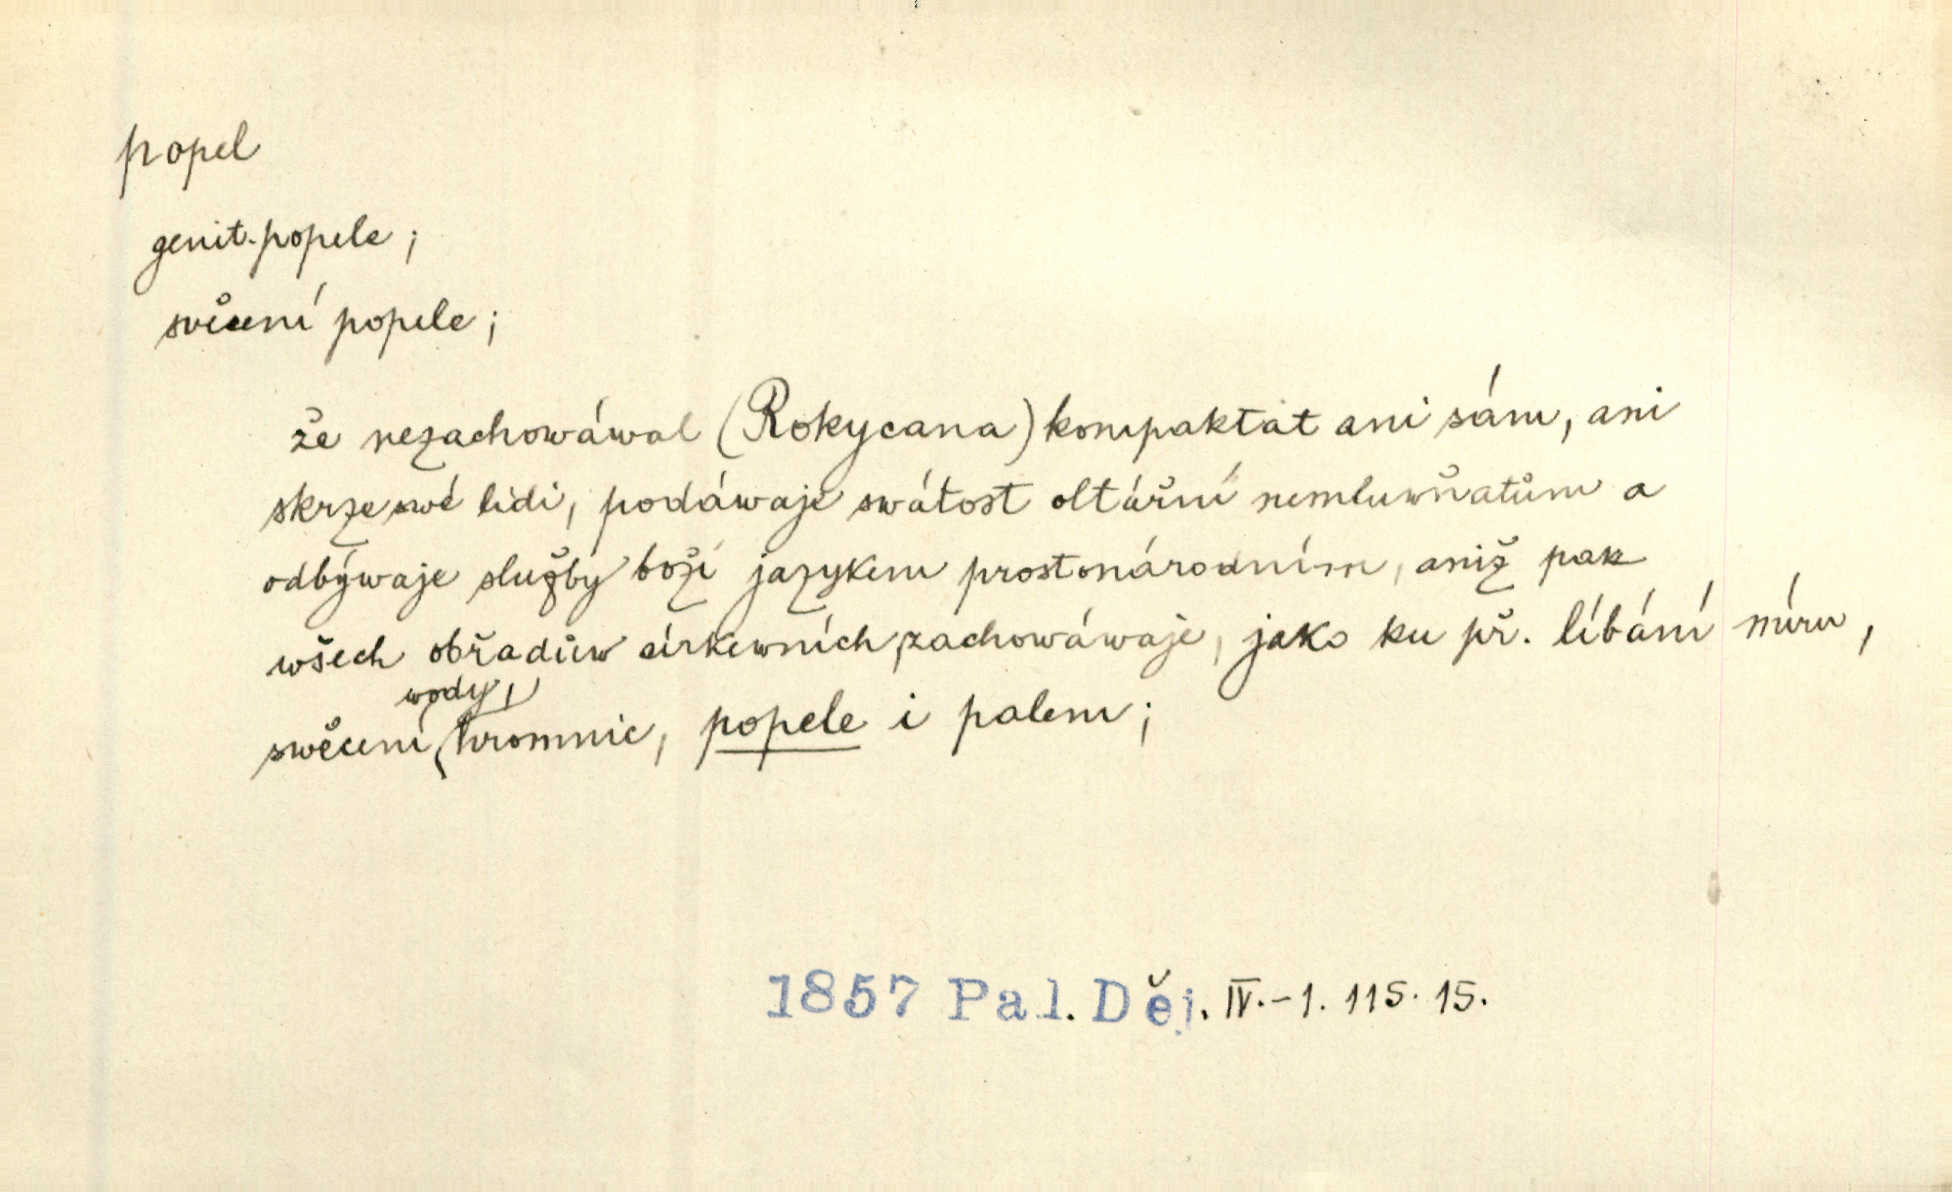 popel
genit. popele;
svěcení popele;
že nezachowáwal (Rokycana) kompaktat ani sám, ani
skrze swé lidi, podáwaje swátost oltářní nemluwňatům a
odbýwaje služby boží jazykem prostonárodním, aniž pak
wšech obřadůw církewních zachowáwaje, jako ku př. líbání míru,
wody,
swěcení hromnic, popele i palem;
1857 Pal. Děj. IV.-1. 115. 15.